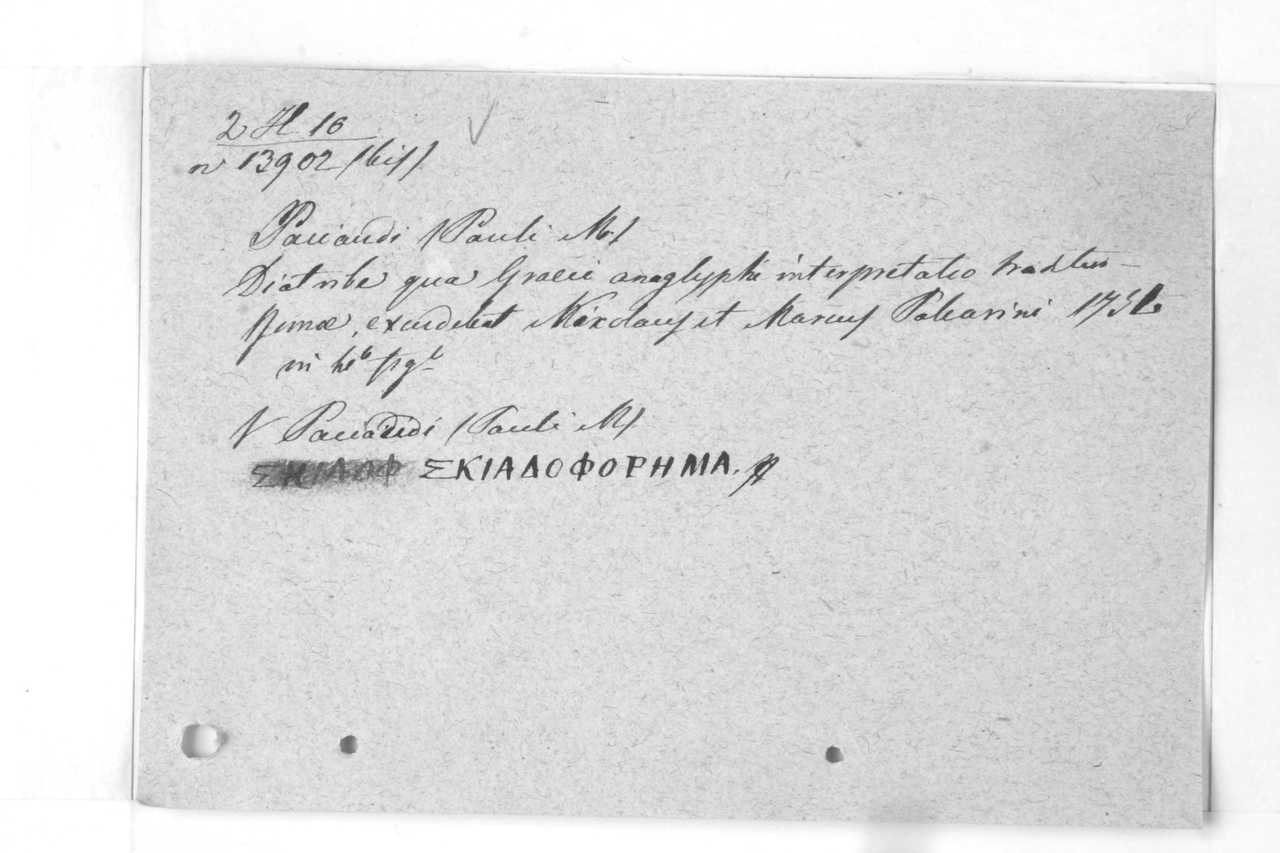 2 H 16
nº 13902 (bis)
Paciaudi (Pauli M)
Diatribe qua Graeci anaglyphi interpretatio traditur —
Romae, excudebat Nicolaus et Marcus Paliarini 1751.
in
V Paciaudi (Pauli M)
ΣΚΙΑΔΟΦ ΣΚΙΑΔΟΦΟΡΗΜΑ.